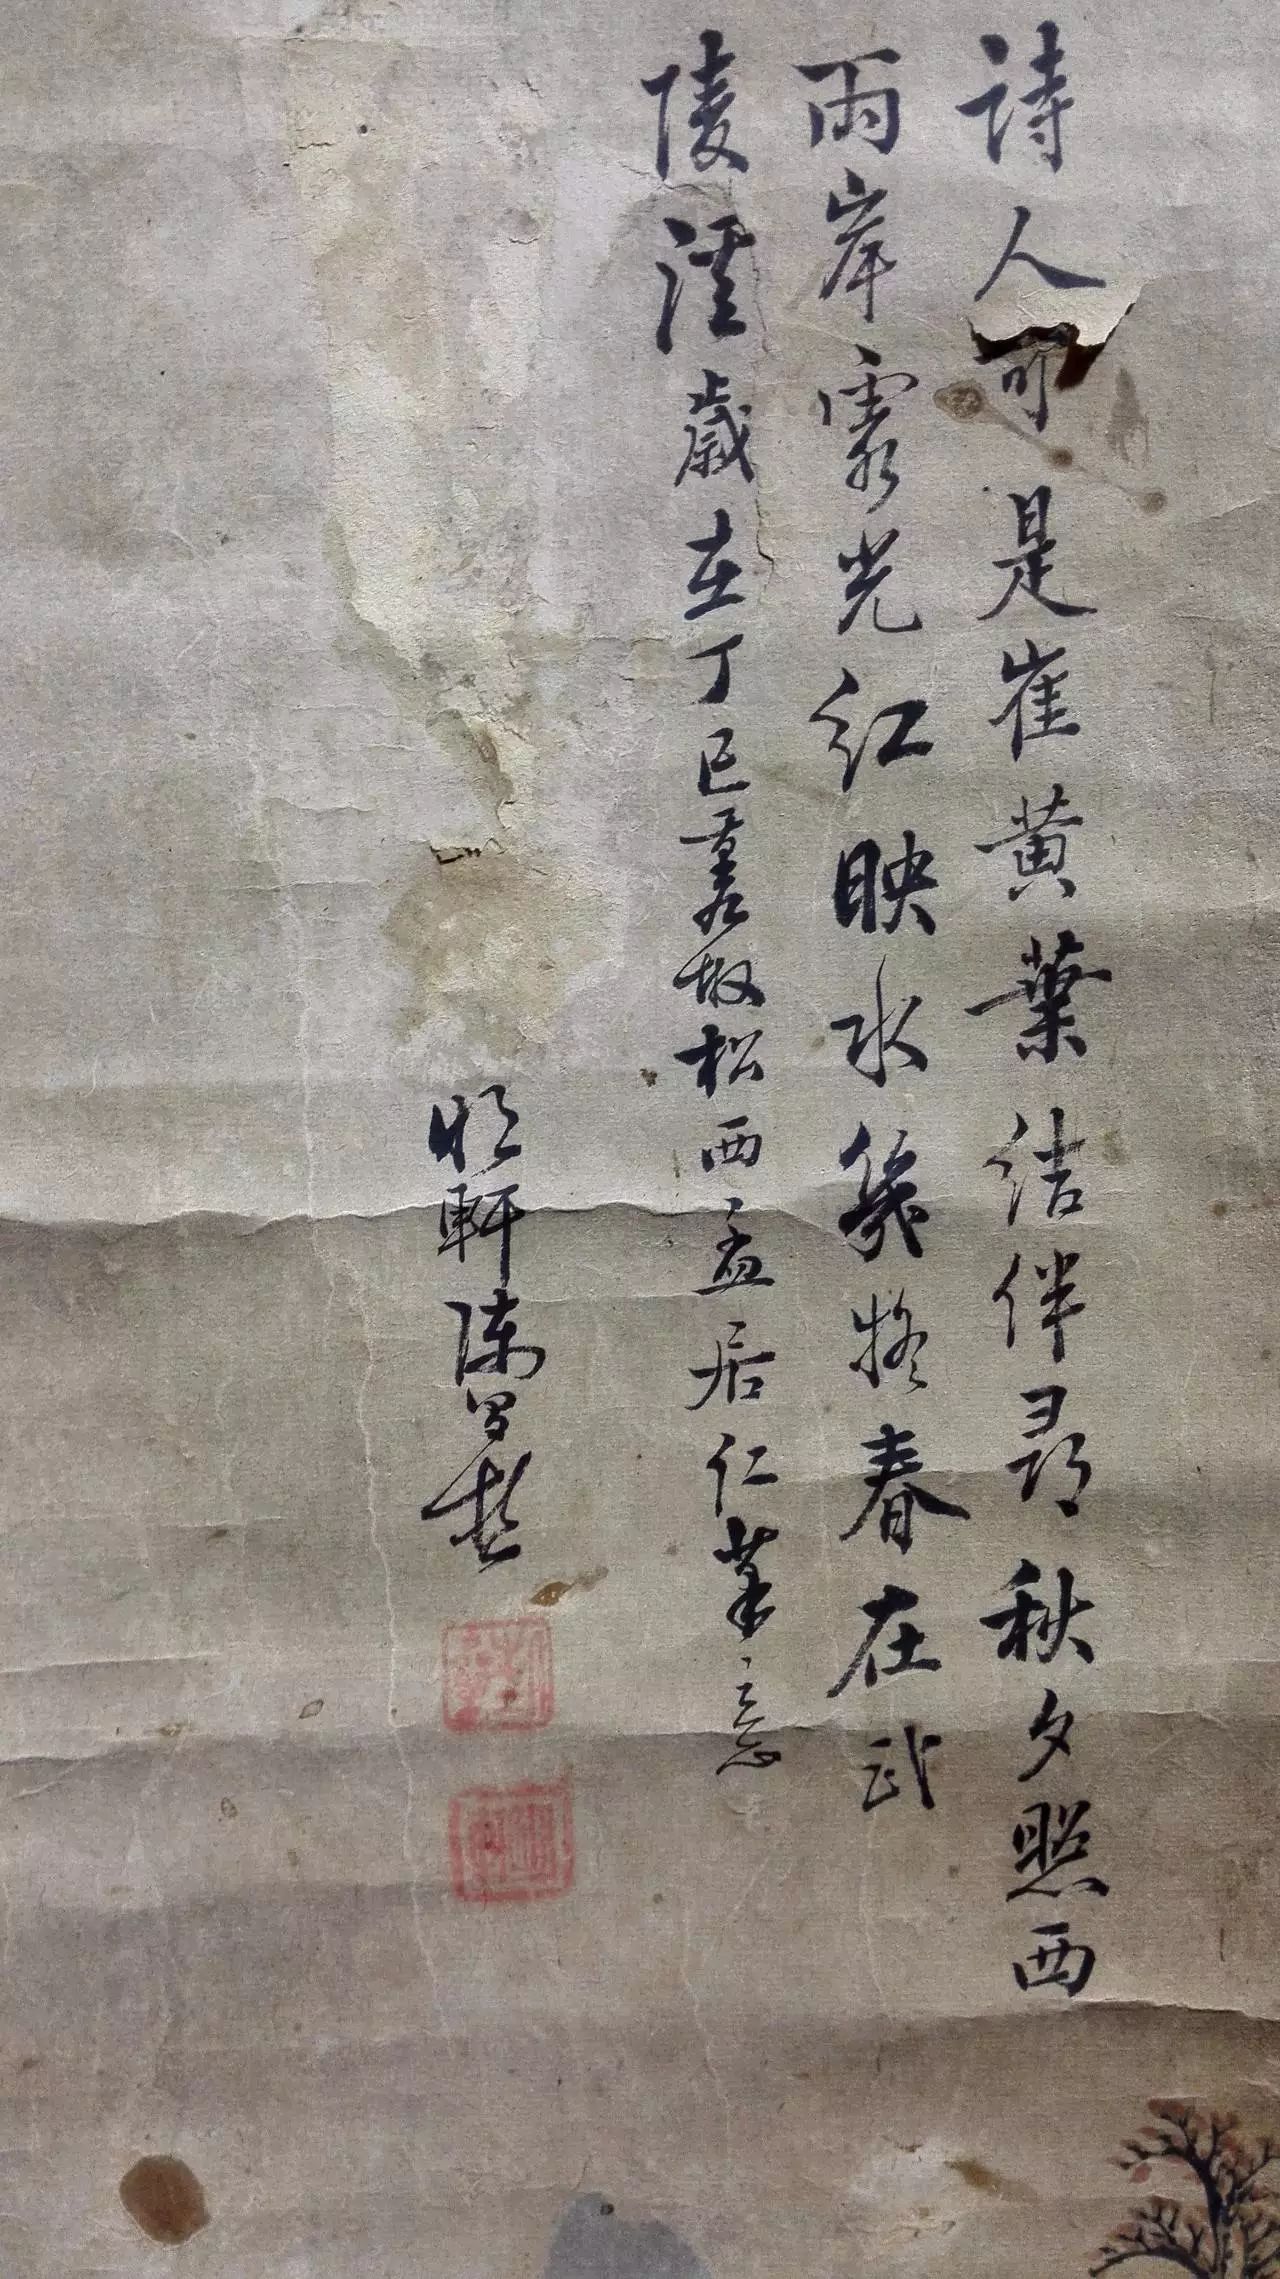 詩人可是崔黄葉結伴尋秋夕照西
兩岸霞光紅映水幾疑春在武
陵溪歲在丁巳倣松西孟居仁筆意
明軒陳